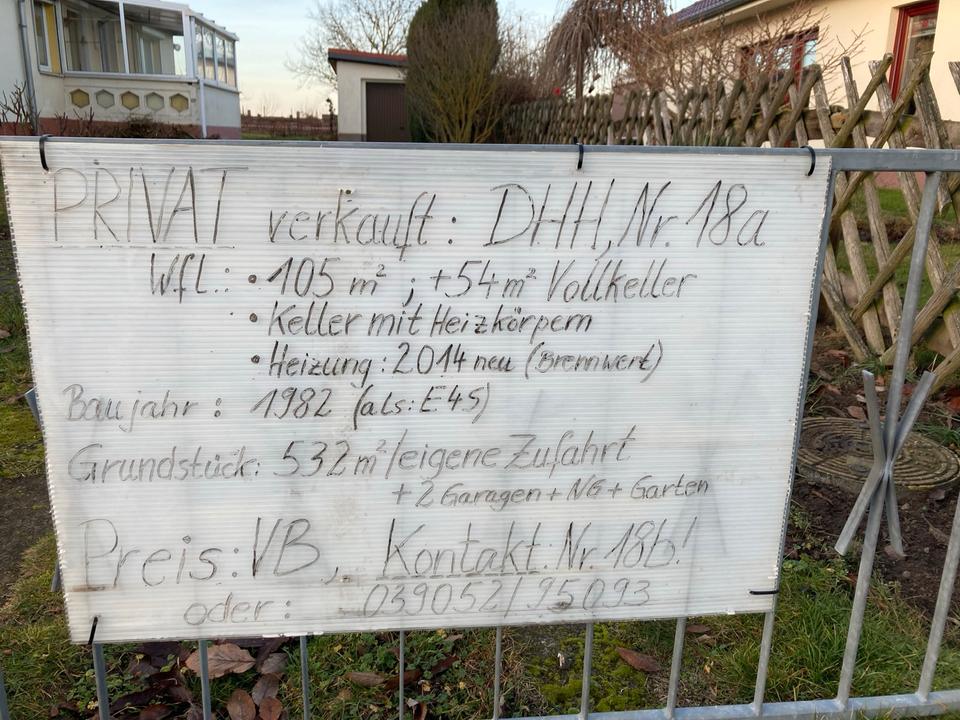 PRIVAT verkauft: DHH, Nr. 18a
Wfl.: • 105 m² ; +54 m² Vollkeller
• Keller mit Heizkörpern
• Heizung: 2014 neu (Brennwert)
Baujahr: 1982 (als: E4S)
Grundstück: 532 m²/eigene Zufahrt
+ 2 Garagen + NG + Garten
Preis: VB, Kontakt: Nr. 18b!
oder: 039052/95093